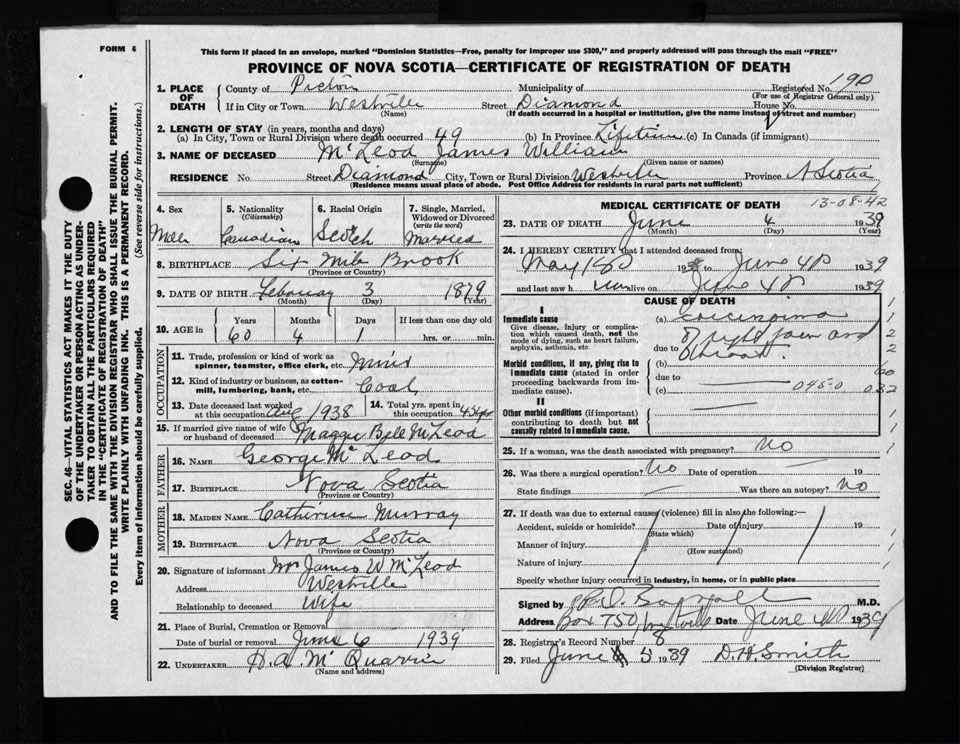 FORM 6
This form if placed in an envelope, marked "Dominion Statistics—Free, penalty for improper use $300," and properly addressed will pass through the mail "FREE"
PROVINCE OF NOVA SCOTIA—CERTIFICATE OF REGISTRATION OF DEATH
SEC. 46—VITAL STATISTICS ACT MAKES IT THE DUTY
OF THE UNDERTAKER OR PERSON ACTING AS UNDER-
TAKER TO OBTAIN ALL THE PARTICULARS REQUIRED
IN THE "CERTIFICATE OF REGISTRATION OF DEATH"
AND TO FILE THE SAME WITH THE DIVISION REGISTRAR WHO SHALL ISSUE THE BURIAL PERMIT.
WRITE PLAINLY WITH UNFADING INK. THIS IS A PERMANENT RECORD.
Every item of information should be carefully supplied. (See reverse side for instructions.)
1. PLACE OF DEATH County of Pictou Municipality of Registered No. 190
(For use of Registrar General only)
If in City or Town Westville Street Diamond House No.
(Name) (If death occurred in a hospital or institution, give the name instead of street and number)
2. LENGTH OF STAY (in years, months and days)
(a) In City, Town or Rural Division where death occurred 49 (b) In Province Lifetime (c) In Canada (if immigrant)
3. NAME OF DECEASED McLeod James William
(Surname) (Given name or names)
RESIDENCE No. Street Diamond City, Town or Rural Division Westville Province N Scotia
(Residence means usual place of abode. Post Office Address for residents in rural parts not sufficient)
4. Sex 5. Nationality (Citizenship) 6. Racial Origin 7. Single, Married, Widowed or Divorced (write the word)
Male Canadian Scotch Married
8. BIRTHPLACE Six Mile Brook
(Province or Country)
9. DATE OF BIRTH February 3 1879
(Month) (Day) (Year)
10. AGE in Years Months Days If less than one day old
60 4 1 hrs. or min.
OCCUPATION
11. Trade, profession or kind of work as spinner, teamster, office clerk, etc. Miner
12. Kind of industry or business, as cotton-mill, lumbering, bank, etc. Coal
13. Date deceased last worked at this occupation Aug 1938 14. Total yrs. spent in this occupation
15. If married give name of wife or husband of deceased Maggie Bell McLeod
FATHER
16. NAME George McLeod
17. BIRTHPLACE Nova Scotia
(Province or Country)
MOTHER
18. MAIDEN NAME Catherine Murray
19. BIRTHPLACE Nova Scotia
(Province or Country)
20. Signature of informant Mrs James W McLeod
Address Westville
Relationship to deceased Wife
21. Place of Burial, Cremation or Removal
Date of burial or removal June 6 1939
22. UNDERTAKER H.A. McQuarrie
(Name and address)
MEDICAL CERTIFICATE OF DEATH
13-08-42
23. DATE OF DEATH June 4 1939
(Month) (Day) (Year)
24. I HEREBY CERTIFY that I attended deceased from:
May to June 4 1939
and last saw h alive on June 4 1939
CAUSE OF DEATH
I
Immediate cause
Give disease, injury or complication which caused death, not the mode of dying, such as heart failure, asphyxia, asthenia, etc.
(a) Carcinoma
due to of right jaw and throat
Morbid conditions, if any, giving rise to immediate cause (stated in order proceeding backwards from immediate cause).
(b)
due to
(c) 045-0
II
Other morbid conditions (if important) contributing to death but not causally related to immediate cause.
25. If a woman, was the death associated with pregnancy? No
26. Was there a surgical operation? No Date of operation 19
State findings Was there an autopsy? No
27. If death was due to external causes (violence) fill in also the following:—
Accident, suicide or homicide? Date of injury 19
(State which)
Manner of injury
(How sustained)
Nature of injury
Specify whether injury occurred in industry, in home, or in public place
Signed by M.D.
Address Box 750, Westville Date June 1939
28. Registrar's Record Number 8
29. Filed June 5 1939 D.H. Smith
(Division Registrar)